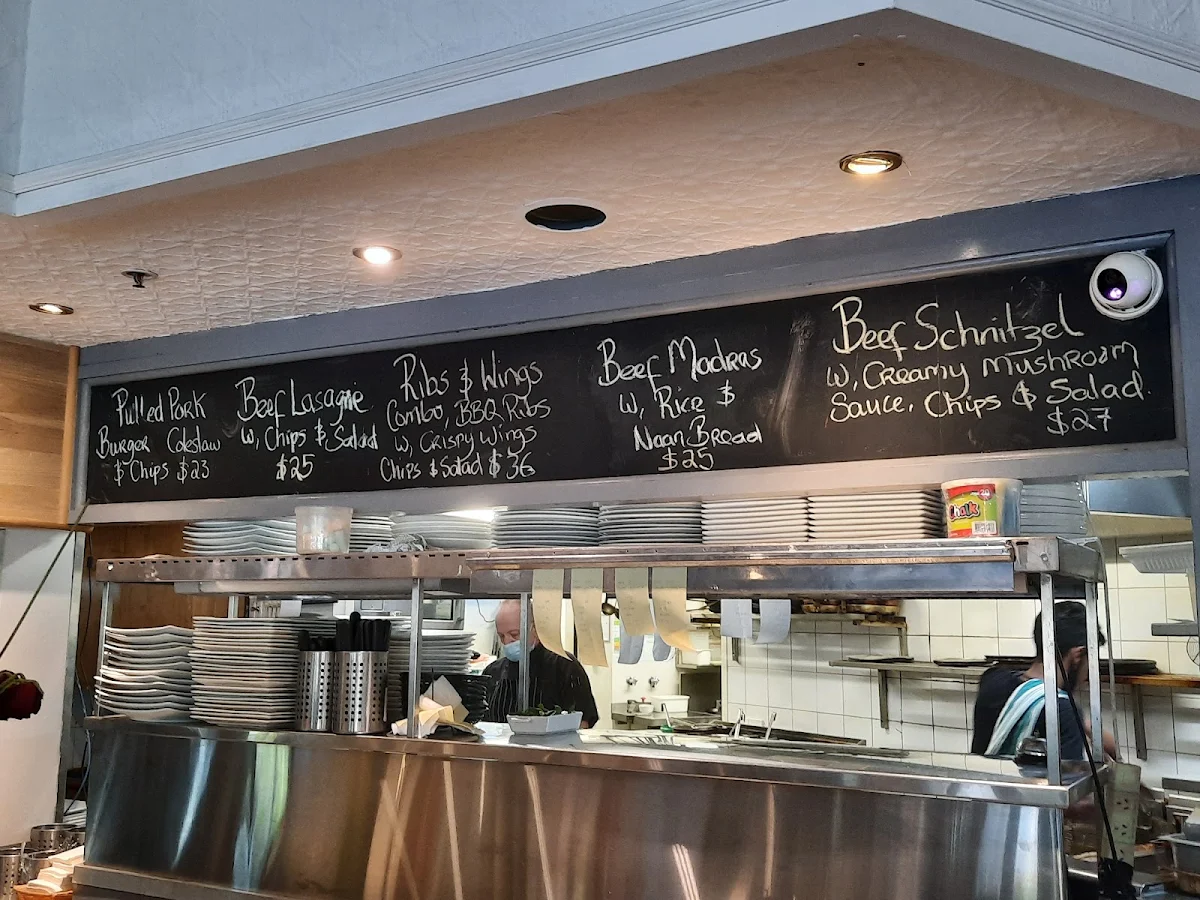 Pulled Pork
Burger Coleslaw
$ Chips $23
Beef Lasagne
w, Chips & Salad
$25
Ribs & Wings
Combo, BBQ Ribs
w, Crispy Wings
Chips & Salad $36
Beef Madras
w, Rice &
Naan Bread
$25
Beef Schnitzel
w, Creamy Mushroom
Sauce, Chips & Salad
$27
Chalk